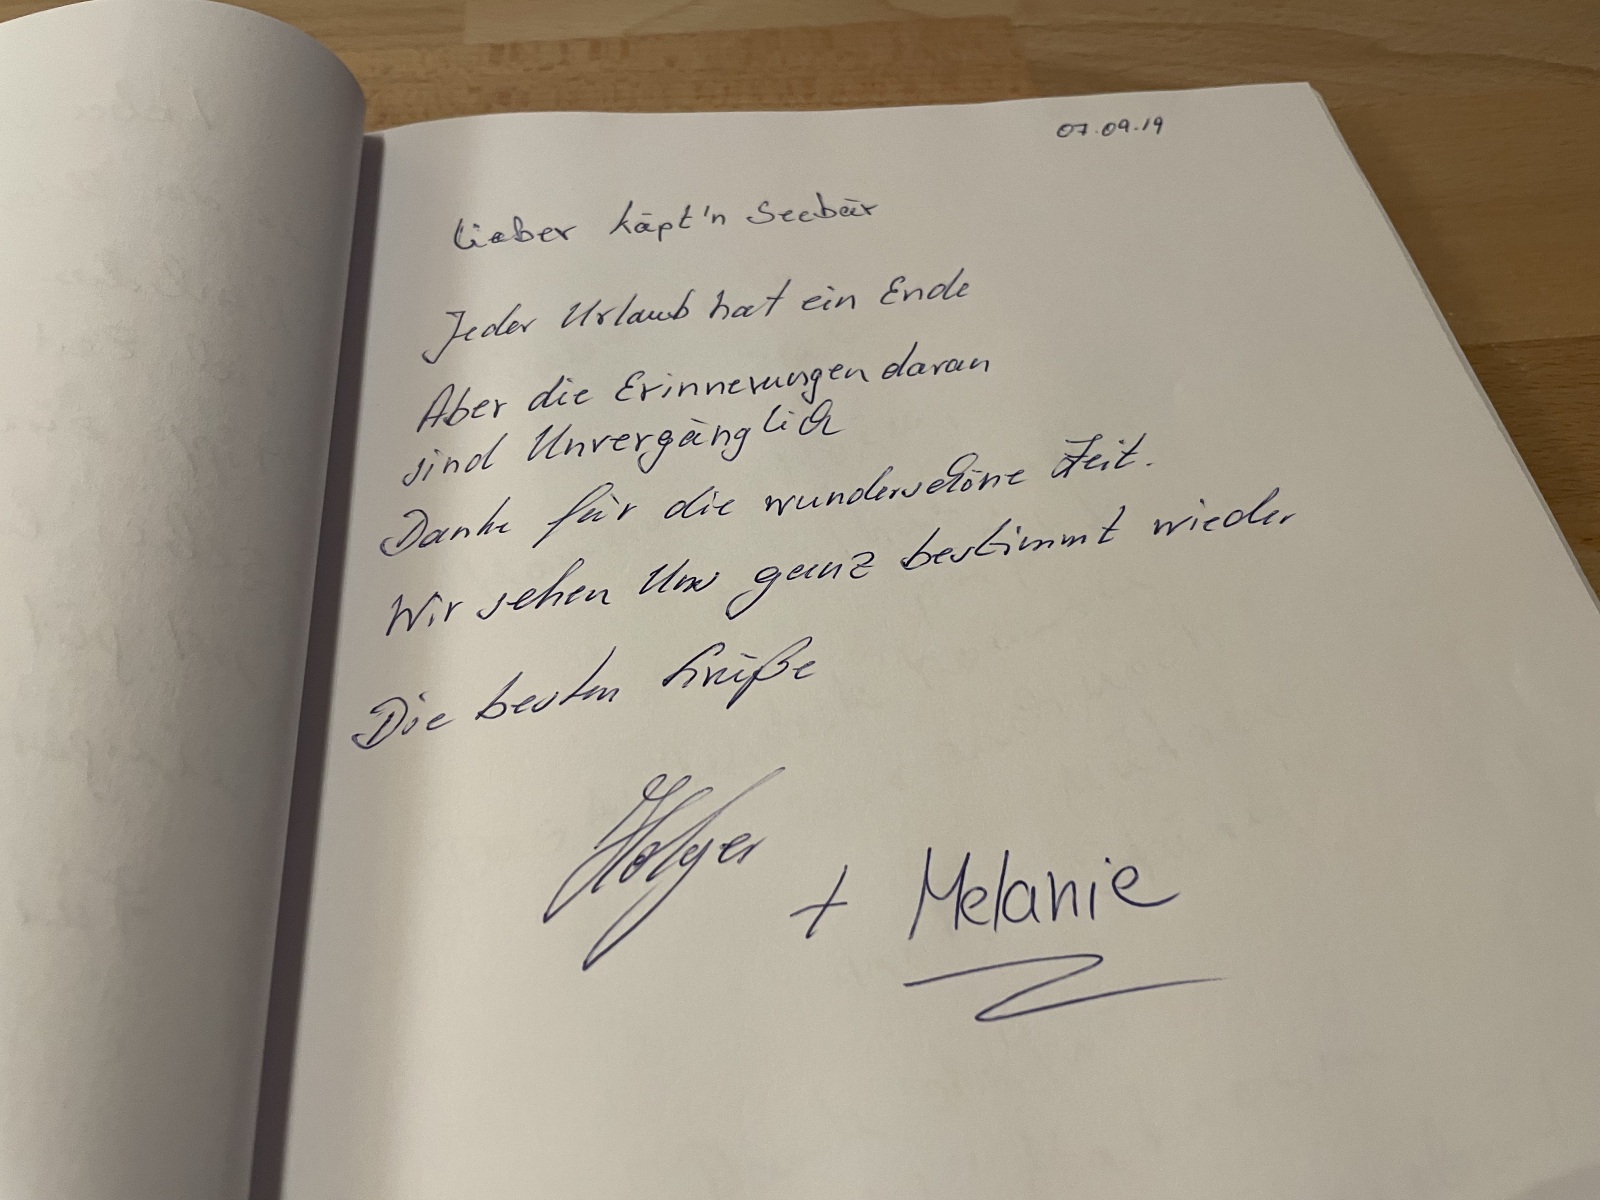 07.09.19
Lieber Käpt'n Seebär
Jeder Urlaub hat ein Ende
Aber die Erinnerungen daran
sind Unvergänglich
Danke für die wunderschöne Zeit.
Wir sehen Uns ganz bestimmt wieder
Die besten Grüße
Holger + Melanie